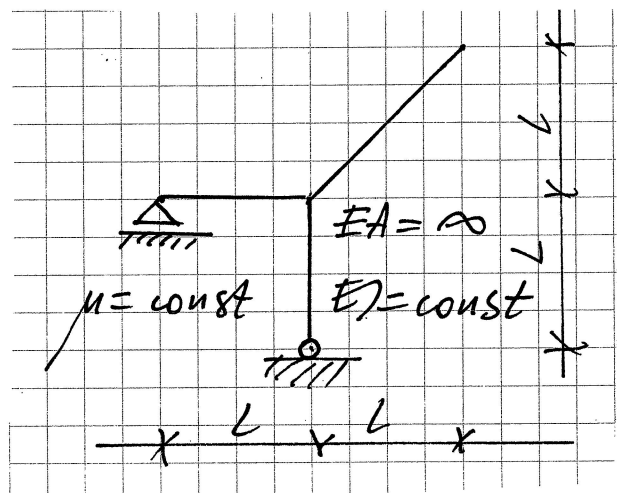 L
EA = ∞
L
μ = const
EJ = const
L
L